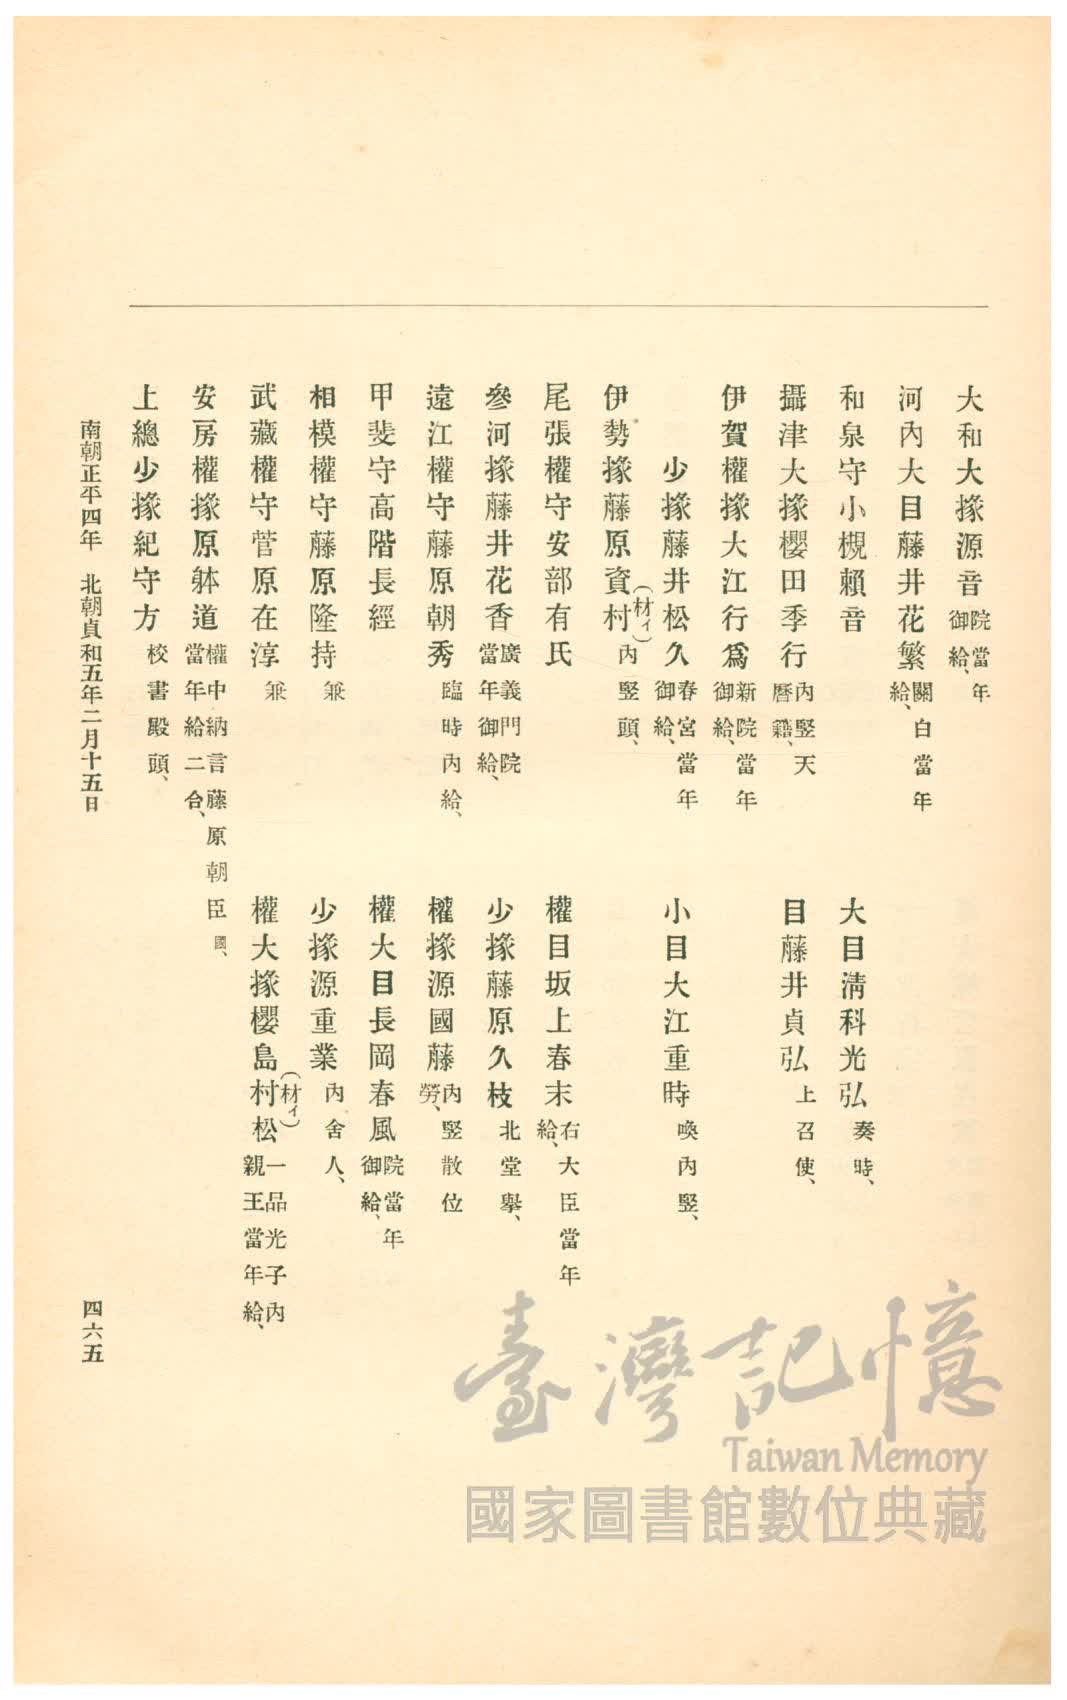 大和大掾源音 院當年御給、
河內大目藤井花繁 關白當年給、
和泉守小槻賴音 大目淸科光弘 奏時、
攝津大掾櫻田季行 內竪天曆籍、 目藤井貞弘 上召使、
伊賀權掾大江行爲 新院當年御給、
少掾藤井松久 春宮當年御給、 小目大江重時 喚內竪、
伊勢掾藤原資村(材イ) 內竪頭、
尾張權守安部有氏 權目坂上春末 右大臣當年給、
參河掾藤井花香 廣義門院當年御給、 少掾藤原久枝 北堂擧、
遠江權守藤原朝秀 臨時內給、 權掾源國藤 內竪散位勞、
甲斐守高階長經 權大目長岡春風 院當年御給、
相模權守藤原隆持 兼 少掾源重業 內舍人、
武藏權守菅原在淳 兼 權大掾櫻島村(材イ)松 一品光子內親王當年給、
安房權掾原躰道 權中納言藤原朝臣國、當年給二合、
上總少掾紀守方 校書殿頭、
南朝正平四年 北朝貞和五年二月十五日
四六五
臺灣記憶
Taiwan Memory
國家圖書館數位典藏